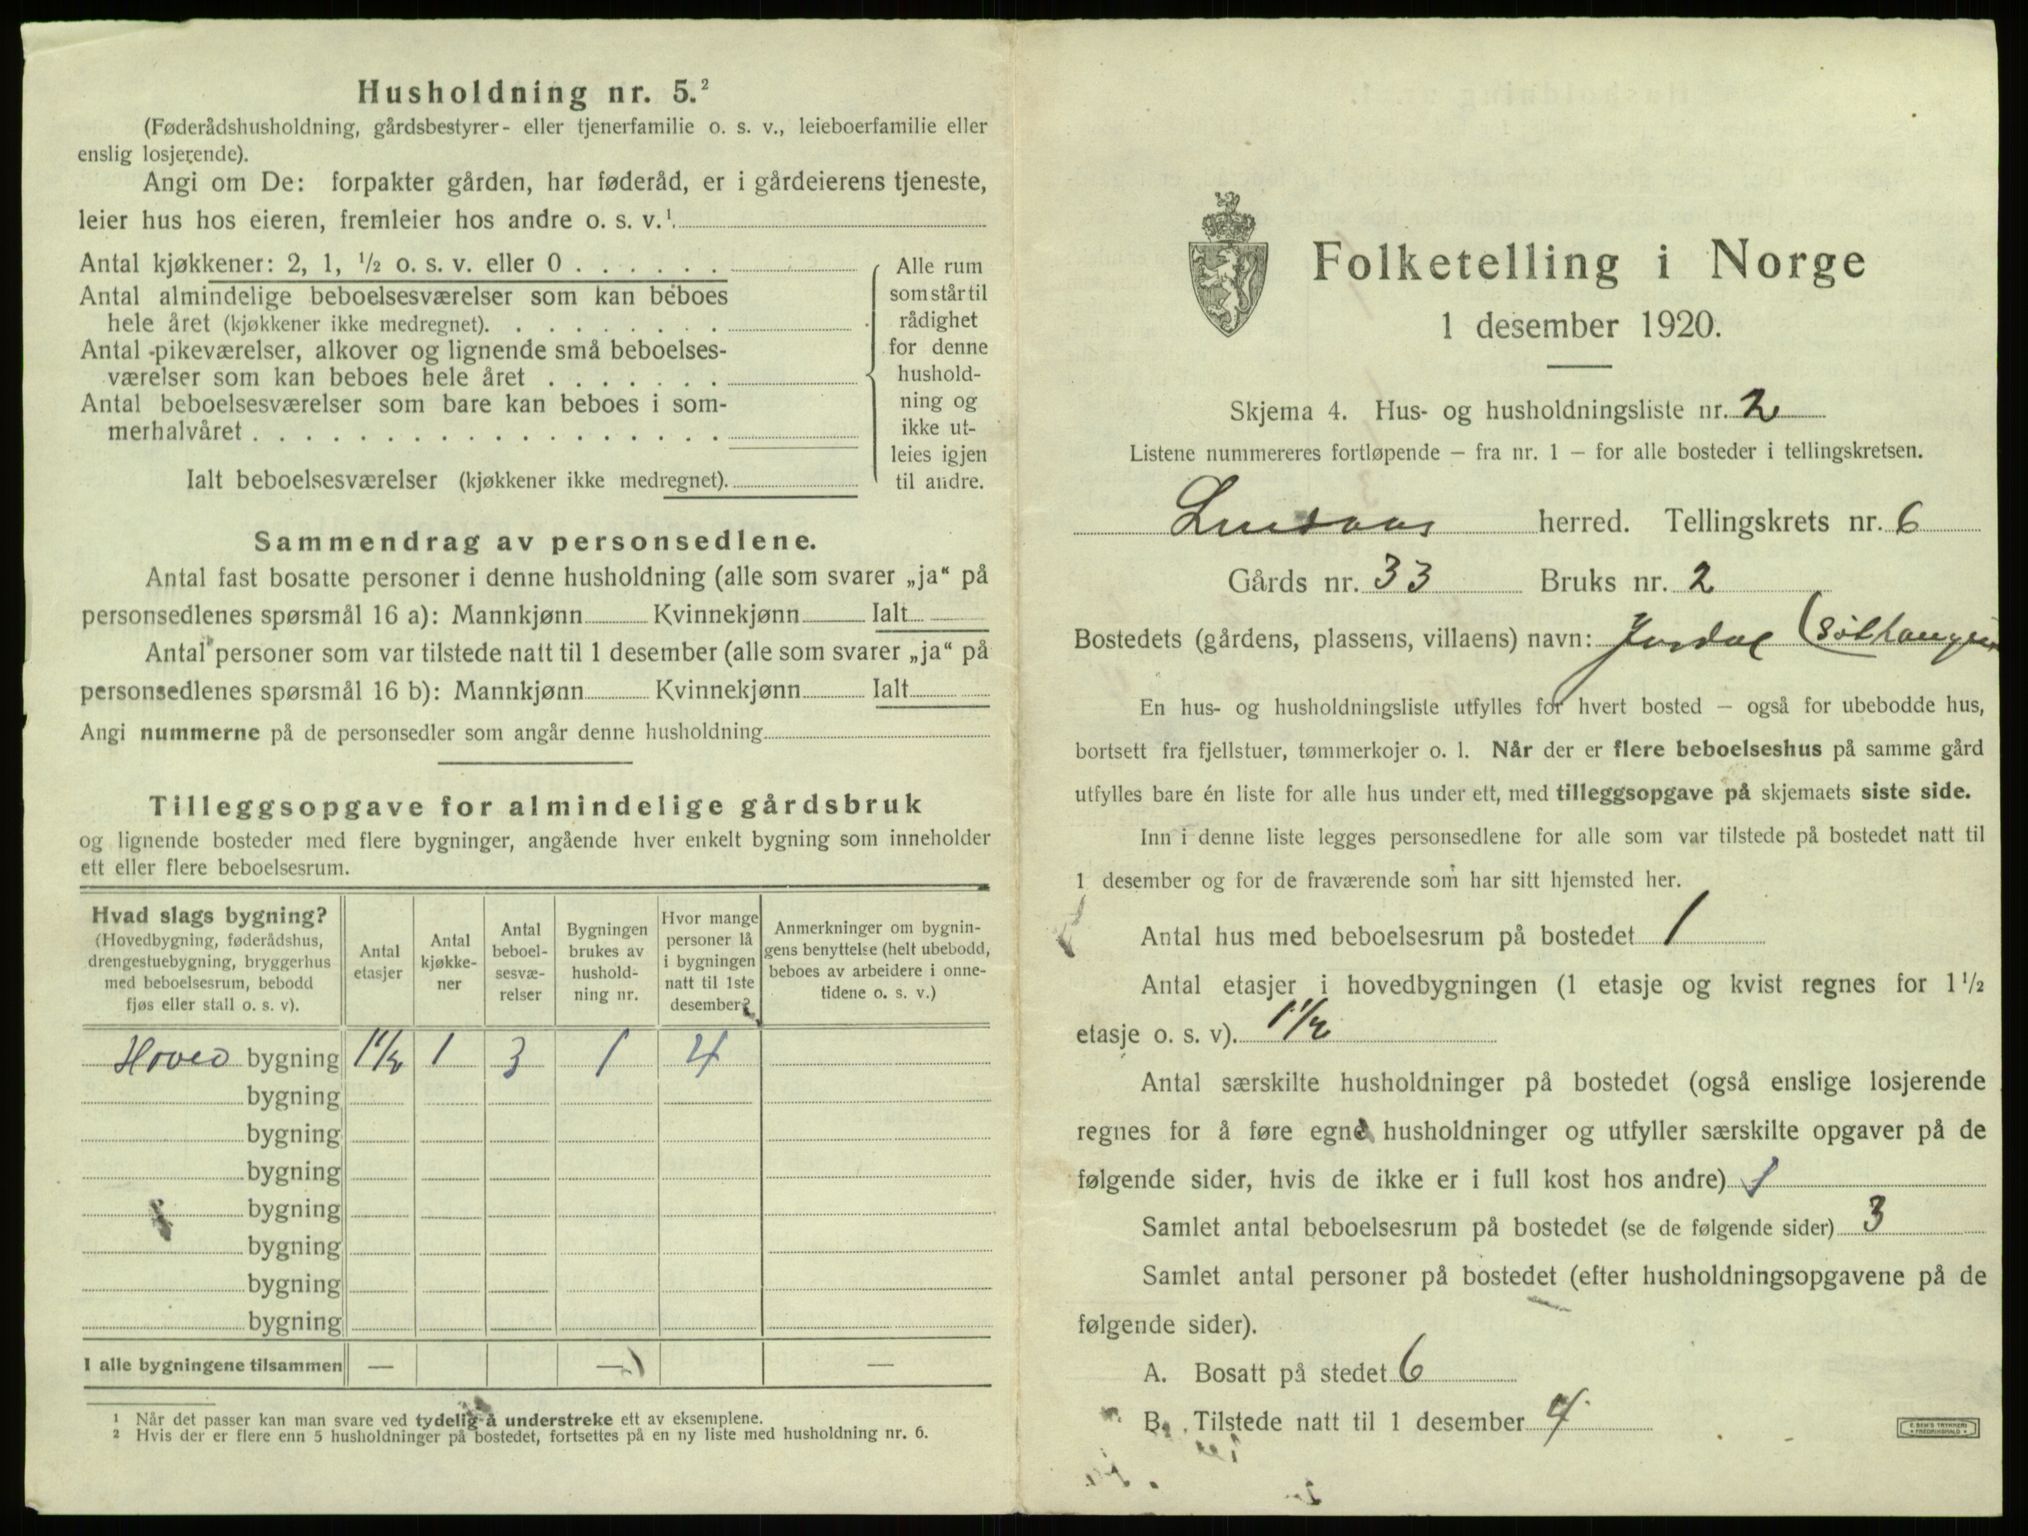 Husholdning nr. 5.²
(Føderådshusholdning, gårdsbestyrer- eller tjenerfamilie o. s. v., leieboerfamilie eller
enslig losjerende).
Angi om De: forpakter gården, har føderåd, er i gårdeierens tjeneste,
leier hus hos eieren, fremleier hos andre o. s. v.¹
Antal kjøkkener: 2, 1, ½ o. s. v. eller 0
Antal almindelige beboelsesværelser som kan beboes
hele året (kjøkkener ikke medregnet)
Antal pikeværelser, alkover og lignende små beboelses-
værelser som kan beboes hele året
Antal beboelsesværelser som bare kan beboes i som-
merhalvåret
Ialt beboelsesværelser (kjøkkener ikke medregnet)
Alle rum
som står til
rådighet
for denne
hushold-
ning og
ikke ut-
leies igjen
til andre.
Sammendrag av personsedlene.
Antal fast bosatte personer i denne husholdning (alle som svarer „ja“ på
personsedlenes spørsmål 16 a): Mannkjønn Kvinnekjønn Ialt
Antal personer som var tilstede natt til 1 desember (alle som svarer „ja“ på
personsedlenes spørsmål 16 b): Mannkjønn Kvinnekjønn Ialt
Angi nummerne på de personsedler som angår denne husholdning
Tilleggsopgave for almindelige gårdsbruk
og lignende bosteder med flere bygninger, angående hver enkelt bygning som inneholder
ett eller flere beboelsesrum.
Hvad slags bygning?
(Hovedbygning, føderådshus,
drengestuebygning, bryggerhus
med beboelsesrum, bebodd
fjøs eller stall o. s. v).
Antal
etasjer
Antal
kjøkke-
ner
Antal
beboel-
sesvæ-
relser
Bygningen
brukes av
hushold-
ning nr.
Hvor mange
personer lå
i bygningen
natt til 1ste
desember?
Anmerkninger om bygnin-
gens benyttelse (helt ubebodd,
beboes av arbeidere i onne-
tidene o. s. v.)
Hoved bygning 1½ 1 3 1 4
bygning
bygning
bygning
bygning
bygning
bygning
bygning
I alle bygningene tilsammen — — —
¹ Når det passer kan man svare ved tydelig å understreke ett av eksemplene.
² Hvis der er flere enn 5 husholdninger på bostedet, fortsettes på en ny liste med husholdning nr. 6.
Folketelling i Norge
1 desember 1920.
Skjema 4. Hus- og husholdningsliste nr. 2
Listene nummereres fortløpende – fra nr. 1 – for alle bosteder i tellingskretsen.
Lindaas herred. Tellingskrets nr. 6
Gårds nr. 33 Bruks nr. 2
Bostedets (gårdens, plassens, villaens) navn: Jordal
En hus- og husholdningsliste utfylles for hvert bosted – også for ubebodde hus,
bortsett fra fjellstuer, tømmerkojer o. l. Når der er flere beboelseshus på samme gård
utfylles bare én liste for alle hus under ett, med tilleggsopgave på skjemaets siste side.
Inn i denne liste legges personsedlene for alle som var tilstede på bostedet natt til
1 desember og for de fraværende som har sitt hjemsted her.
Antal hus med beboelsesrum på bostedet 1
Antal etasjer i hovedbygningen (1 etasje og kvist regnes for 1½
etasje o. s. v). 1½
Antal særskilte husholdninger på bostedet (også enslige losjerende
regnes for å føre egne husholdninger og utfyller særskilte opgaver på de
følgende sider, hvis de ikke er i full kost hos andre) 1
Samlet antal beboelsesrum på bostedet (se de følgende sider) 3
Samlet antal personer på bostedet (efter husholdningsopgavene på de
følgende sider).
A. Bosatt på stedet 6
B. Tilstede natt til 1 desember 4